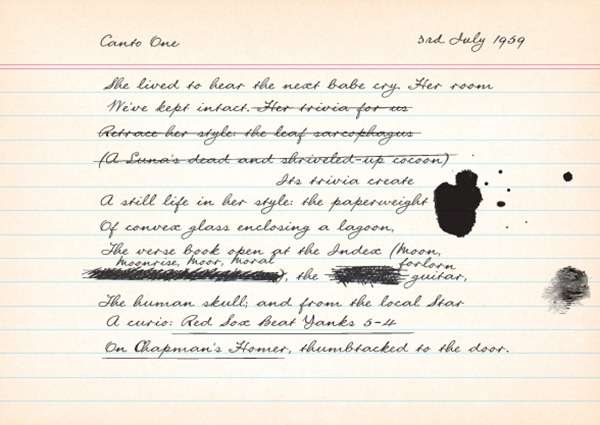 Canto One
3rd July 1959
She lived to hear the next babe cry. Her room
We've kept intact. Her trivia for us
Retrace her style: the leaf sarcophagus
(A Luna's dead and shriveled-up cocoon)
Its trivia create
A still life in her style: the paperweight
Of convex glass enclosing a lagoon,
The verse book open at the Index (Moon,
Moonrise, Moor, Moral forlorn
), the guitar,
The human skull; and from the local Star
A curio: Red Sox Beat Yanks 5-4
On Chapman's Homer, thumbtacked to the door.